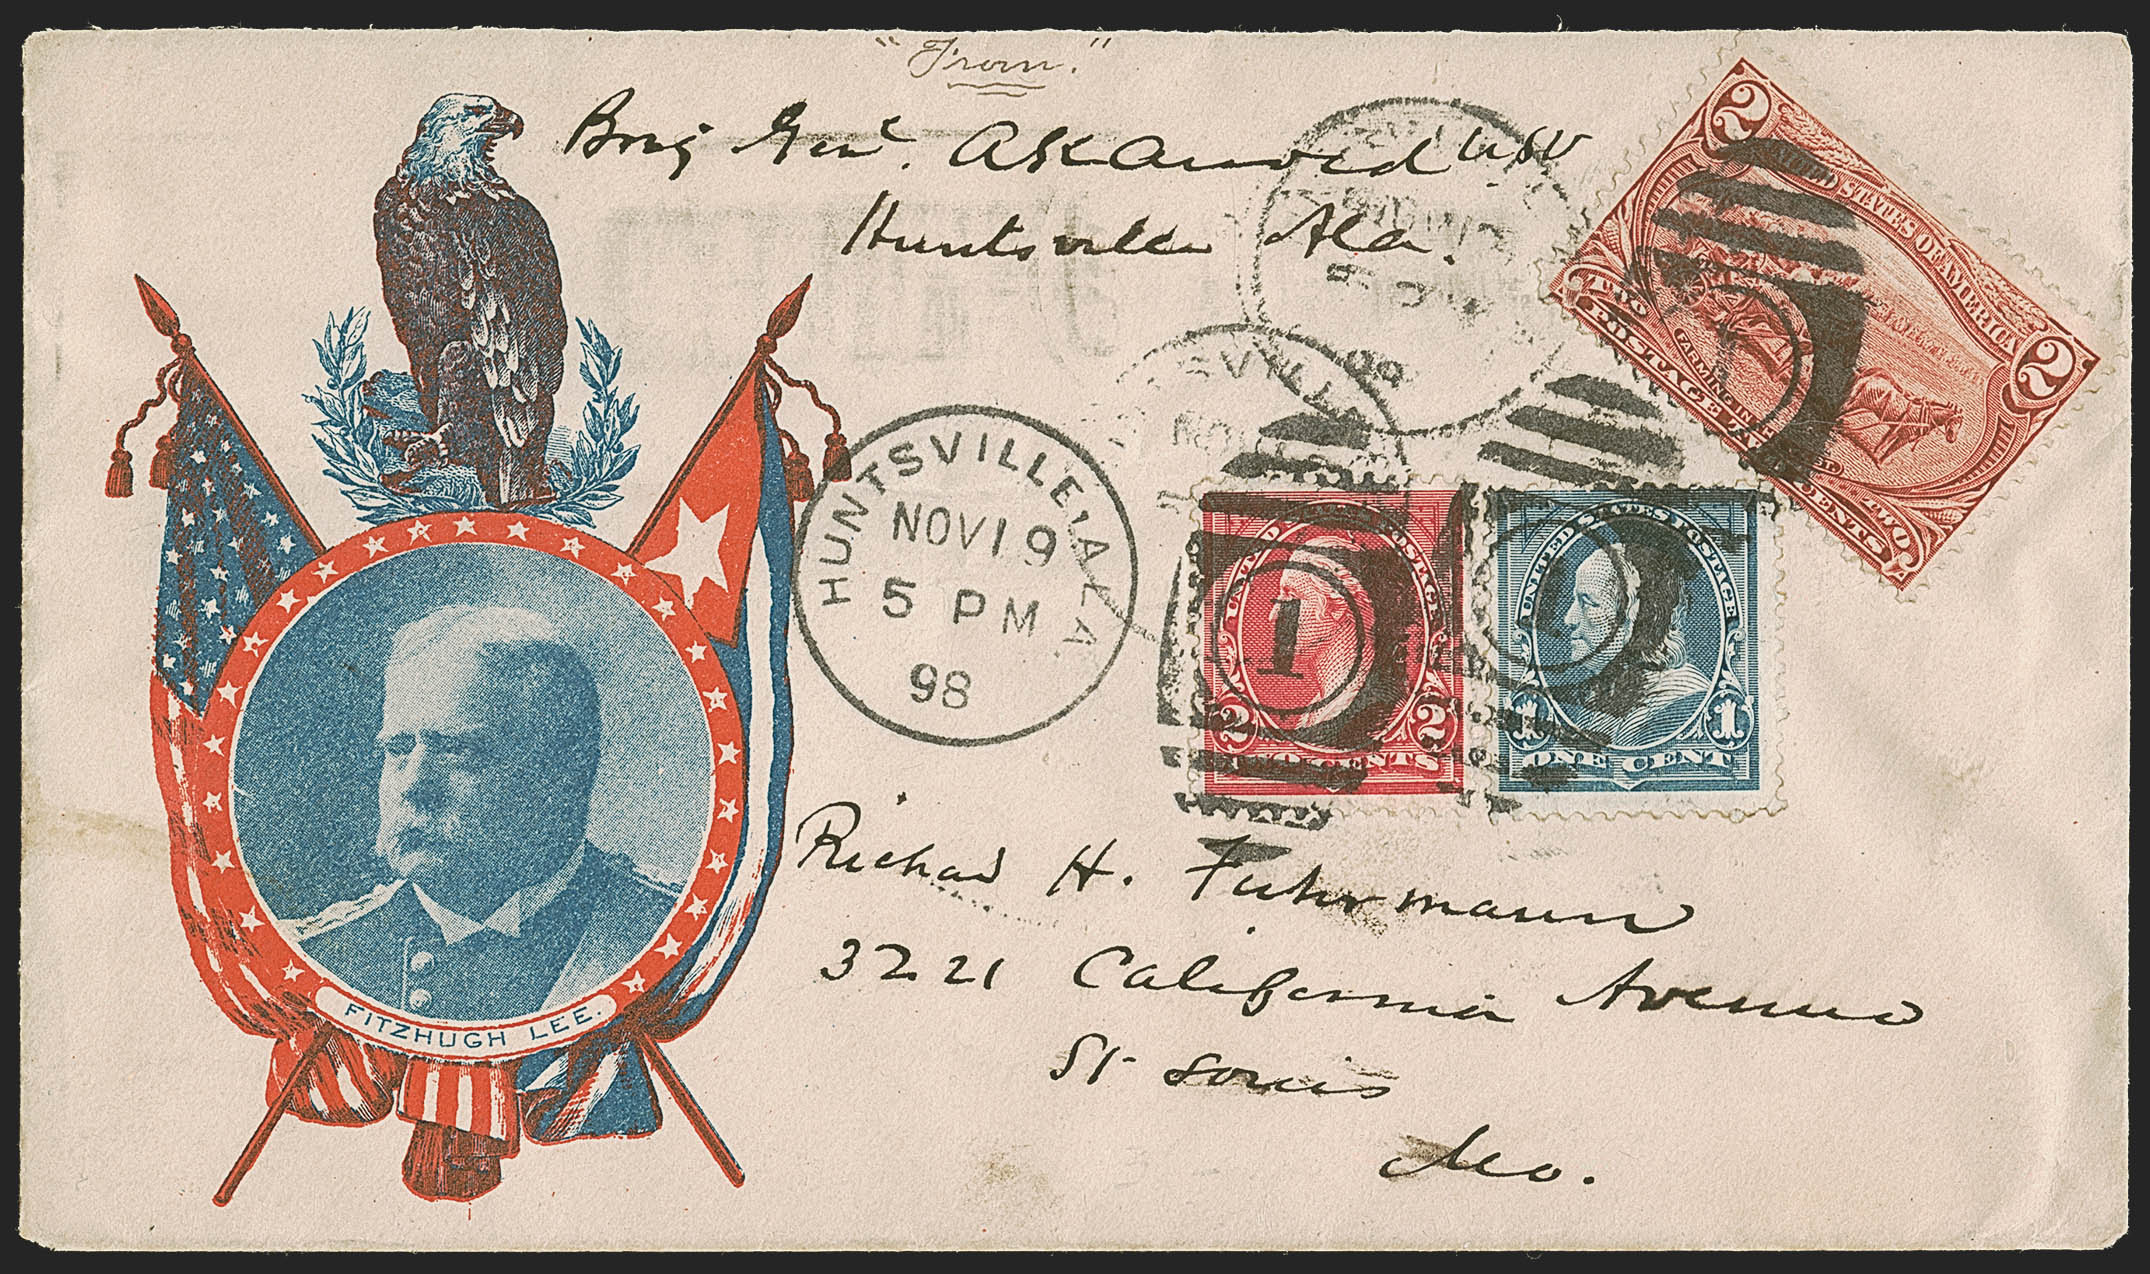 "From."
Brig Genl. AKArnold USV
Huntsville Ala.
HUNTSVILLE, ALA
NOV 19
5 PM
98
SVILLE
2
UNITED STATES OF AMERICA
TWO
FARMING IN THE WEST.
POSTAGE TWO CENTS
2
UNITED STATES POSTAGE
1
2 2
TWO CENTS
UNITED STATES POSTAGE
1 1
ONE CENT
Richard H. Fuhrmann
3221 California Avenue
St Louis
Mo.
FITZHUGH LEE.